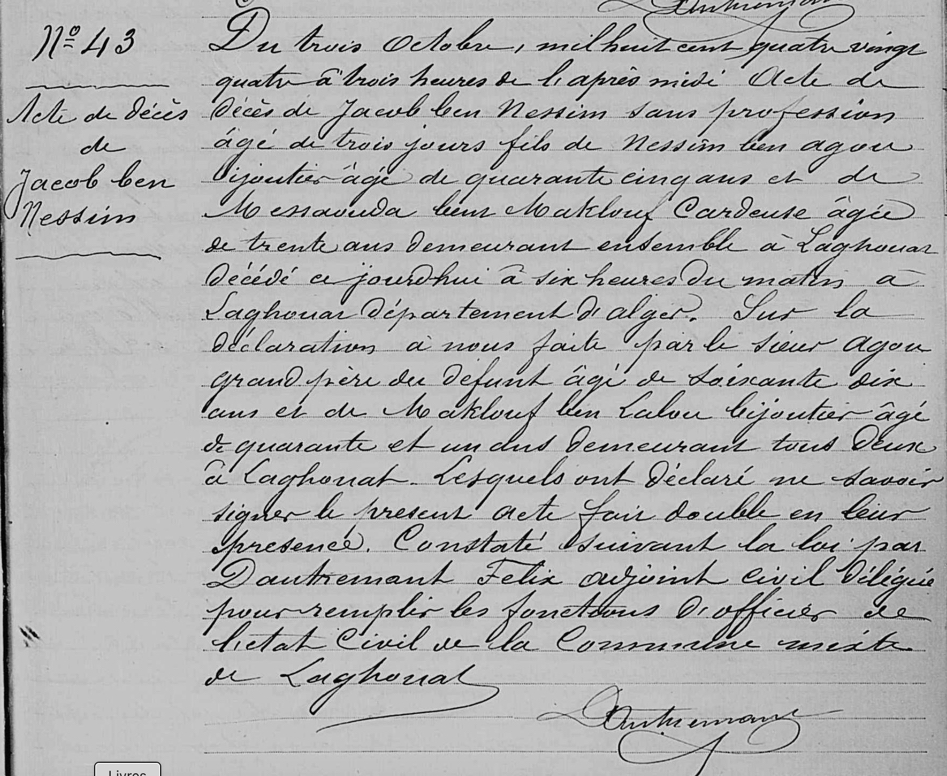 Dautremant
Nº 43
Acte de décès
de
Jacob ben
Nessim
Du trois Octobre, mil huit cent quatre vingt
quatre à trois heures de l'après midi Acte de
décès de Jacob ben Nessim sans profession
âgé de trois jours fils de Nessim ben agou
bijoutier âgé de quarante cinq ans et de
Messaouda bent Maklouf Cardeuse âgée
de trente ans demeurant ensemble à Laghouat
décédé ce jourdhui à six heures du matin à
Laghouat département d'alger. Sur la
déclaration à nous faite par le sieur agou
grand père du défunt âgé de soixante dix
ans et de Maklouf ben Lalou bijoutier âgé
de quarante et un ans demeurant tous deux
à Laghouat. Lesquels ont déclaré ne savoir
signer le present acte fait double en leur
presence. Constaté suivant la loi par
Dautremant Felix adjoint civil délégué
pour remplir les fonctions d'officier de
l'etat Civil de la Commune mixte
de Laghouat
Dautremant
Livres